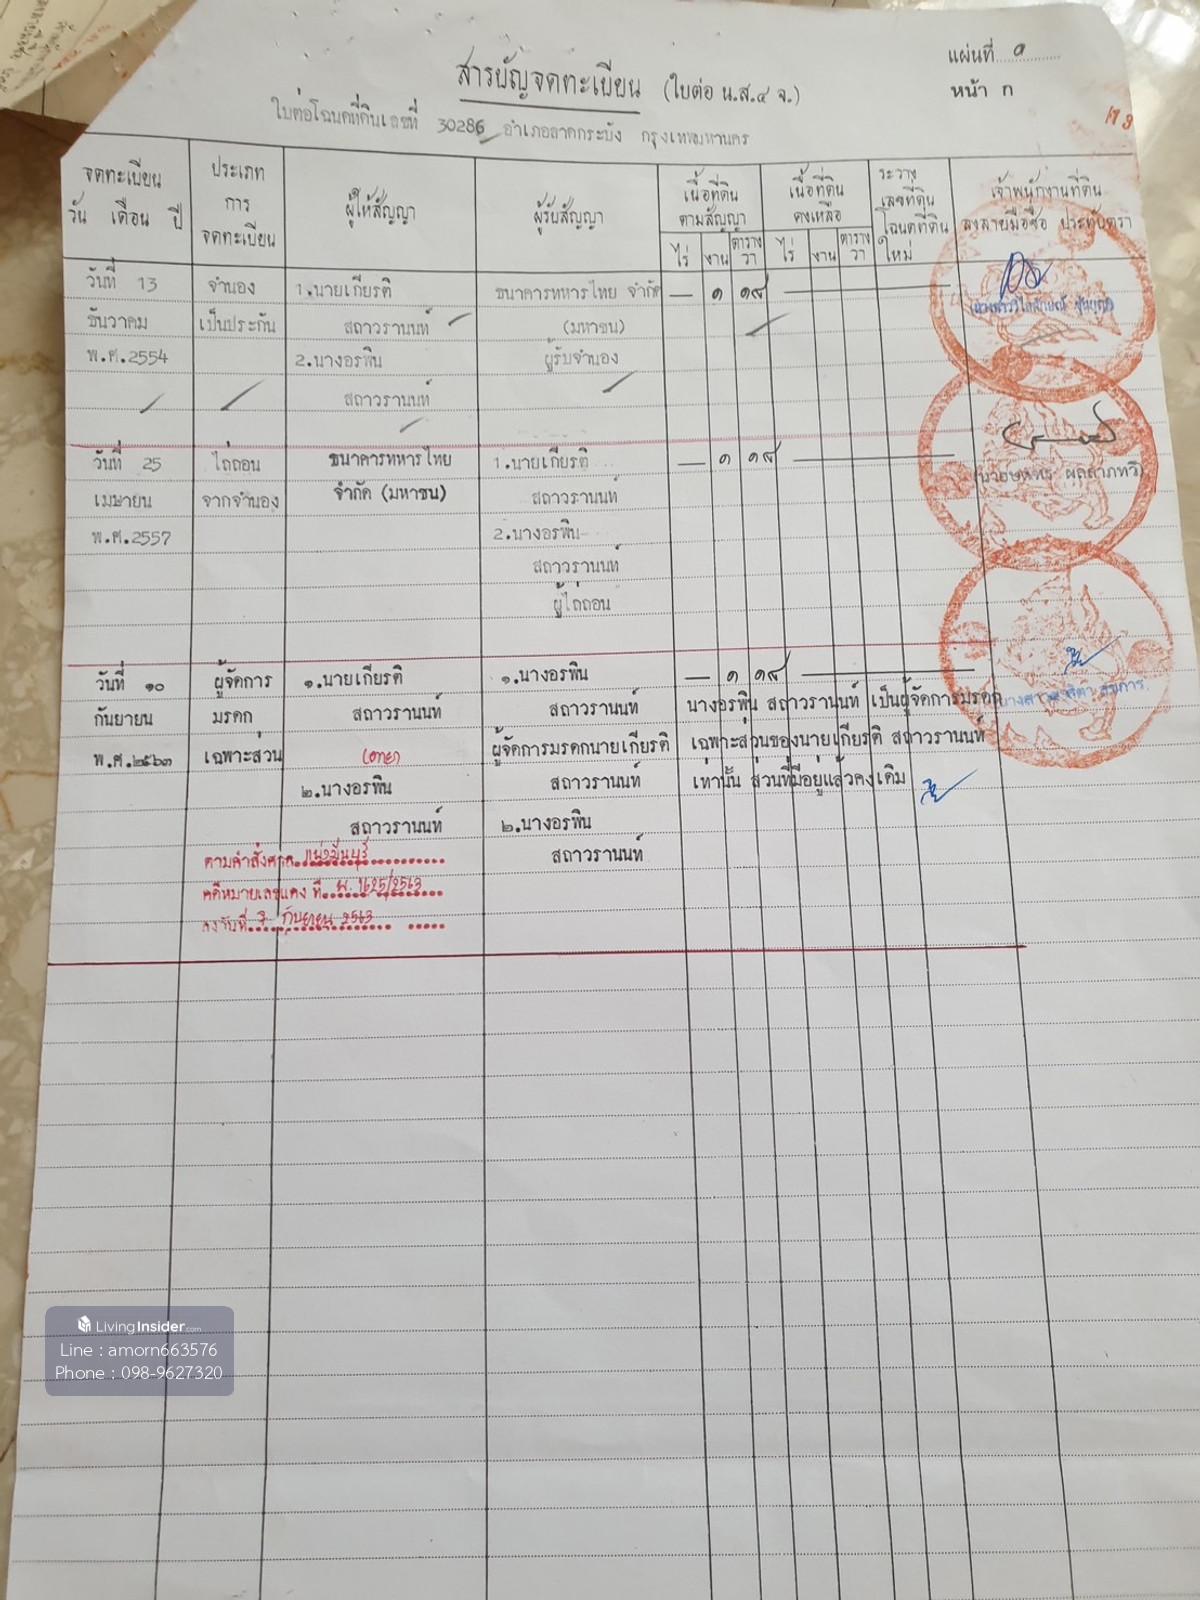 แผ่นที่ ๑
หน้า ก
สารบัญจดทะเบียน (ใบต่อ น.ส.๔ จ.)
ใบต่อโฉนดที่ดินเลขที่ 30286 อำเภอลาดกระบัง กรุงเทพมหานคร
จดทะเบียน วัน เดือน ปี
ประเภท การ จดทะเบียน
ผู้ให้สัญญา
ผู้รับสัญญา
เนื้อที่ดิน ตามสัญญา
ไร่ งาน ตาราง วา
เนื้อที่ดิน คงเหลือ
ไร่ งาน ตาราง วา
ระวาง เลขที่ดิน โฉนดที่ดิน ใหม่
เจ้าพนักงานที่ดิน ลงลายมือชื่อ ประทับตรา
วันที่ 13 จำนอง 1.นายเกียรติ ธนาคารทหารไทย จำกัด — ๑ ๑๘
ธันวาคม เป็นประกัน สถาวรานนท์ (มหาชน)
พ.ศ.2554 2.นางอรพิน ผู้รับจำนอง
สถาวรานนท์
วันที่ 25 ไถ่ถอน ธนาคารทหารไทย 1.นายเกียรติ — ๑ ๑๘
เมษายน จากจำนอง จำกัด (มหาชน) สถาวรานนท์
พ.ศ.2557 2.นางอรพิน
สถาวรานนท์
ผู้ไถ่ถอน
วันที่ ๑๐ ผู้จัดการ ๑.นายเกียรติ ๑.นางอรพิน — ๑ ๑๘
กันยายน มรดก สถาวรานนท์ สถาวรานนท์ นางอรพิน สถาวรานนท์ เป็นผู้จัดการมรดก
พ.ศ.๒๕๖๓ เฉพาะส่วน (ตาย) ผู้จัดการมรดกนายเกียรติ เฉพาะส่วนของนายเกียรติ สถาวรานนท์
๒.นางอรพิน สถาวรานนท์ เท่านั้น ส่วนที่มีอยู่แล้วคงเดิม
สถาวรานนท์ ๒.นางอรพิน
ตามคำสั่งศาล แพ่งมีนบุรี สถาวรานนท์
คดีหมายเลขแดง ที่ พ.1625/2563
ลงวันที่ 3 กันยายน 2563
LivingInsider.com
Line : amorn663576
Phone : 098-9627320